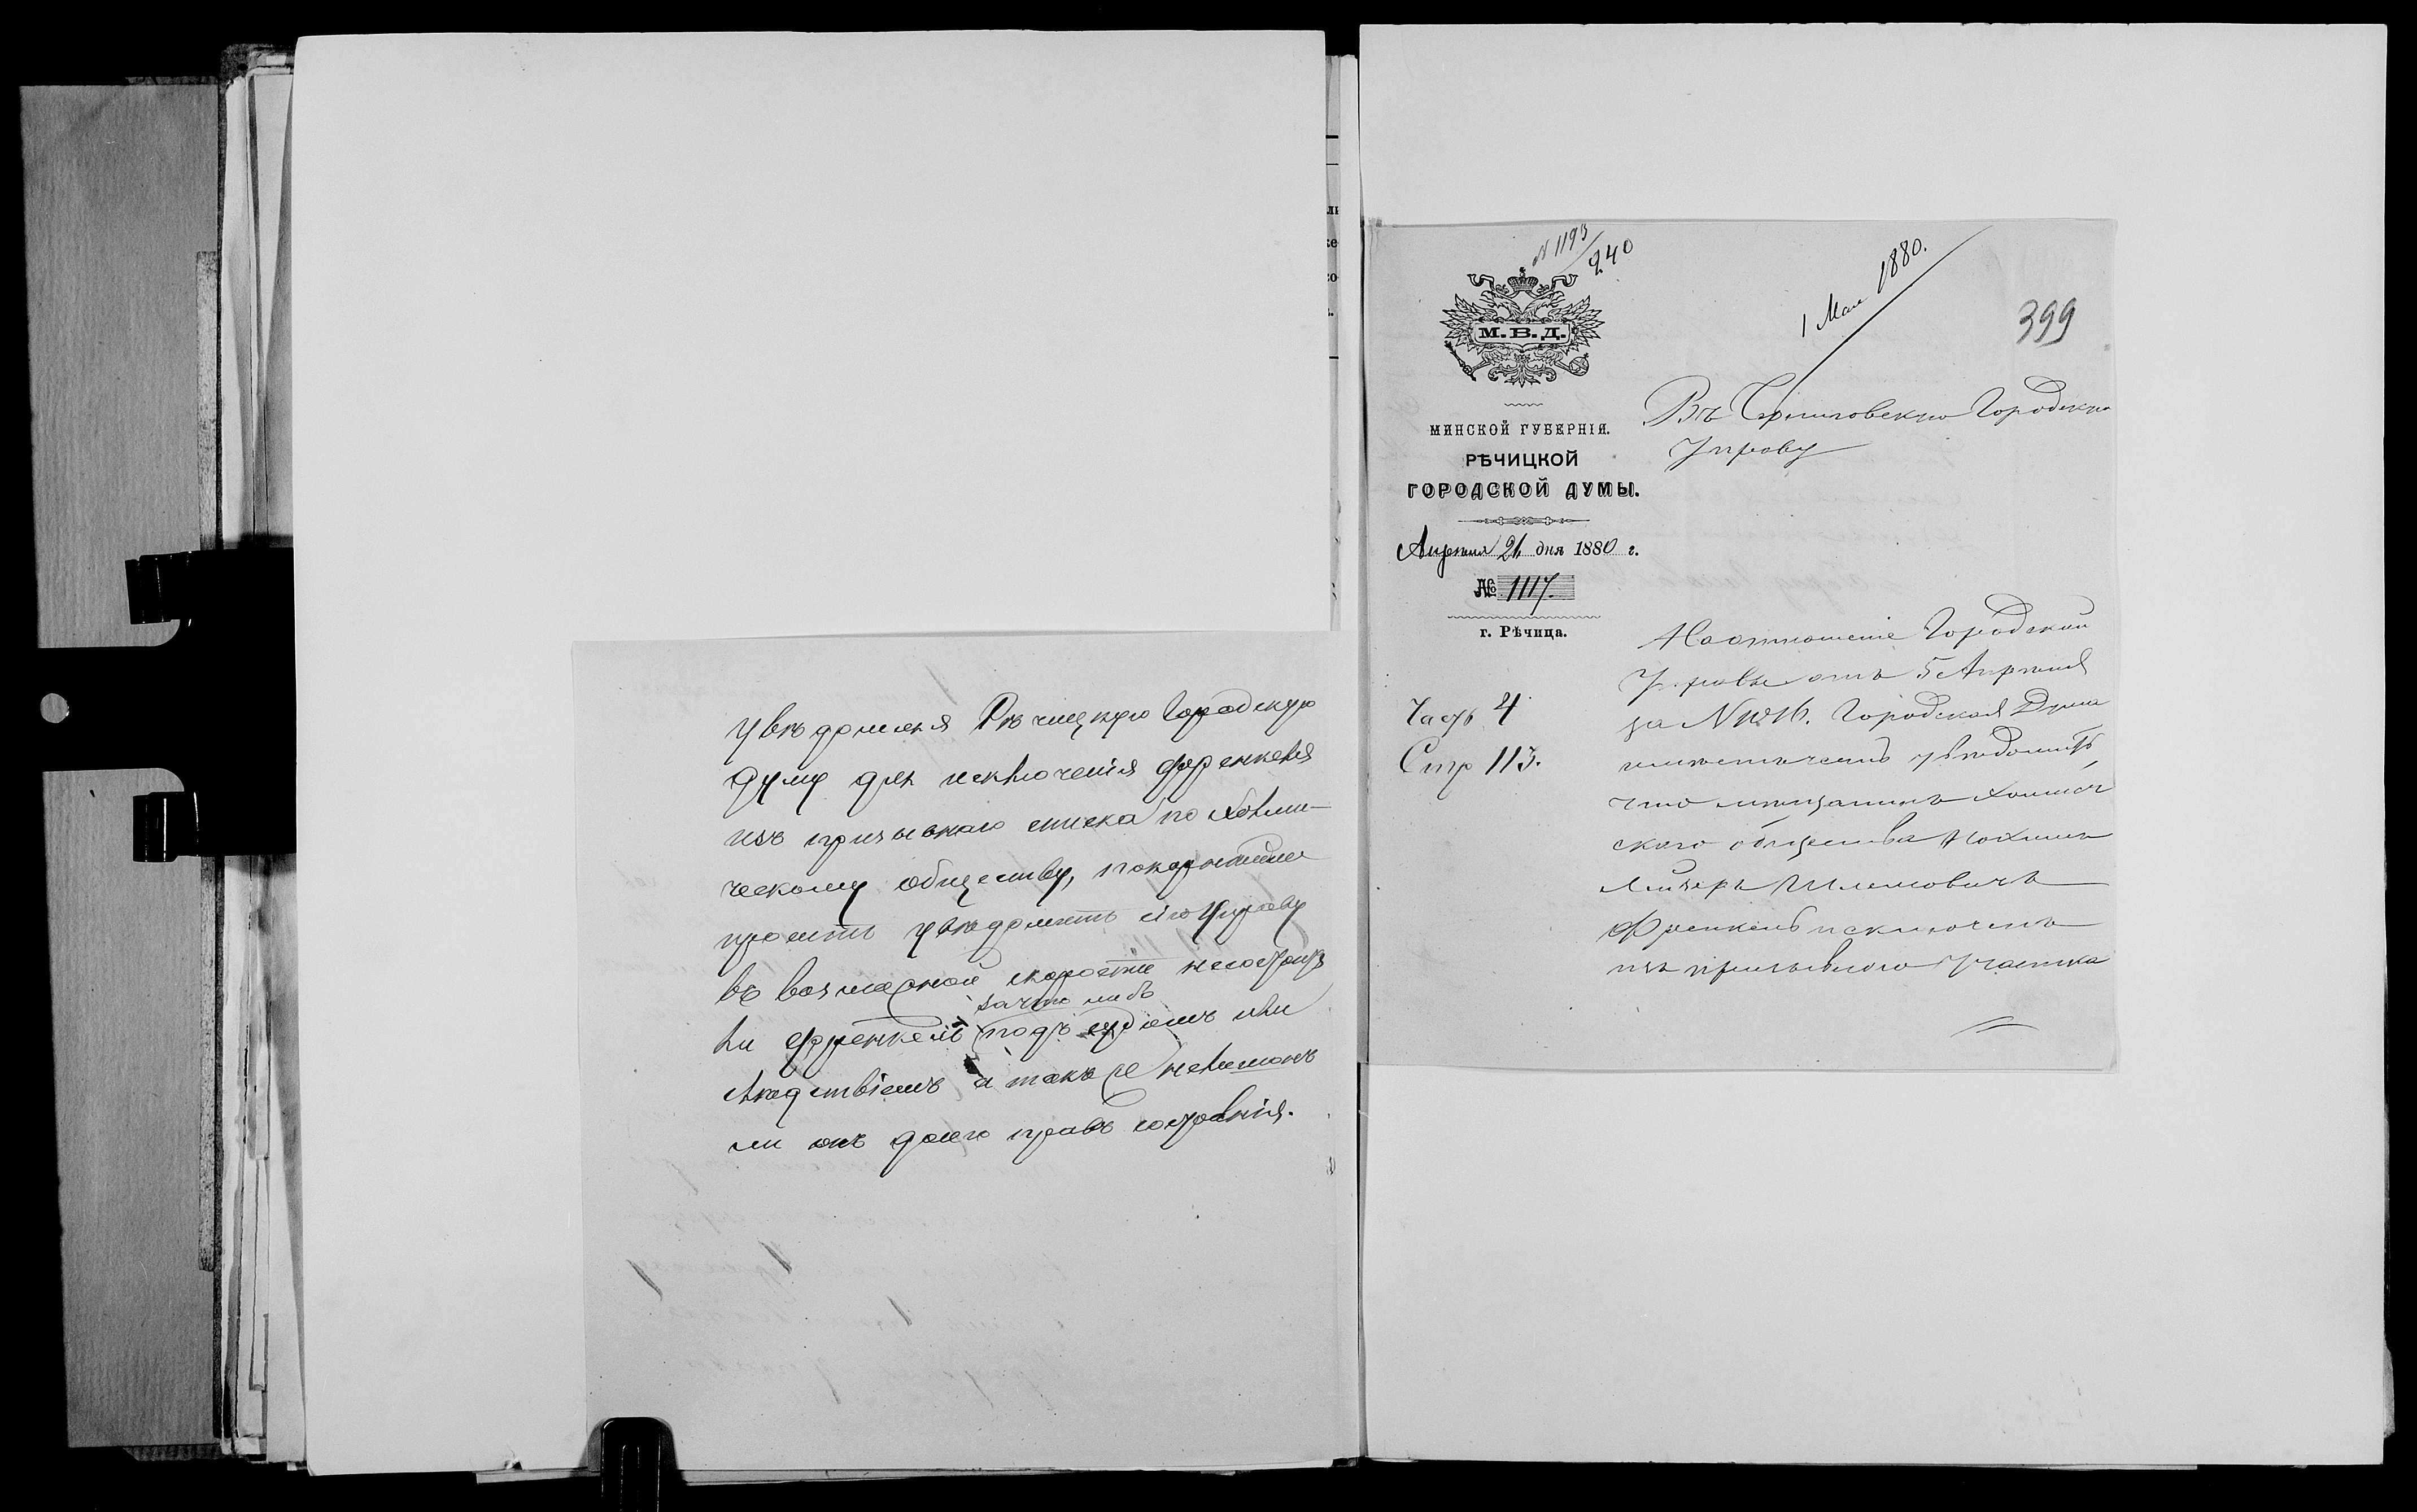 увѣдомляя Рѣчицкую Городскую
Думу для исключенія Френкеля
изъ призывнаго списка по Холми-
ческому обществу, покорнѣйше
проситъ увѣдомить сію Управу
въ возможной скорости несостоитъ
зачто либо
ли Френкель подъ судомъ или
слѣдствіемъ а также нелишонъ
ли онъ долго правъ состоянія.
N 1193/240
1 Мая 1880.
399
М.В.Д.
МИНСКОЙ ГУБЕРНІЯ.
РѢЧИЦКОЙ
ГОРОДСКОЙ ДУМЫ.
Апреля 21 дня 1880 г.
№ 1117.
г. Рѣчица.
Часть 4
Стр 113.
Въ Городскую
Управу
На отношеніе Городской
Управы отъ 5 Апреля
за N Городская Дума
увѣдомить
что мещанинъ Холмеч
скаго общества
Лейзеръ Шлемовичъ
Френкель исключенъ
изъ призывного участка